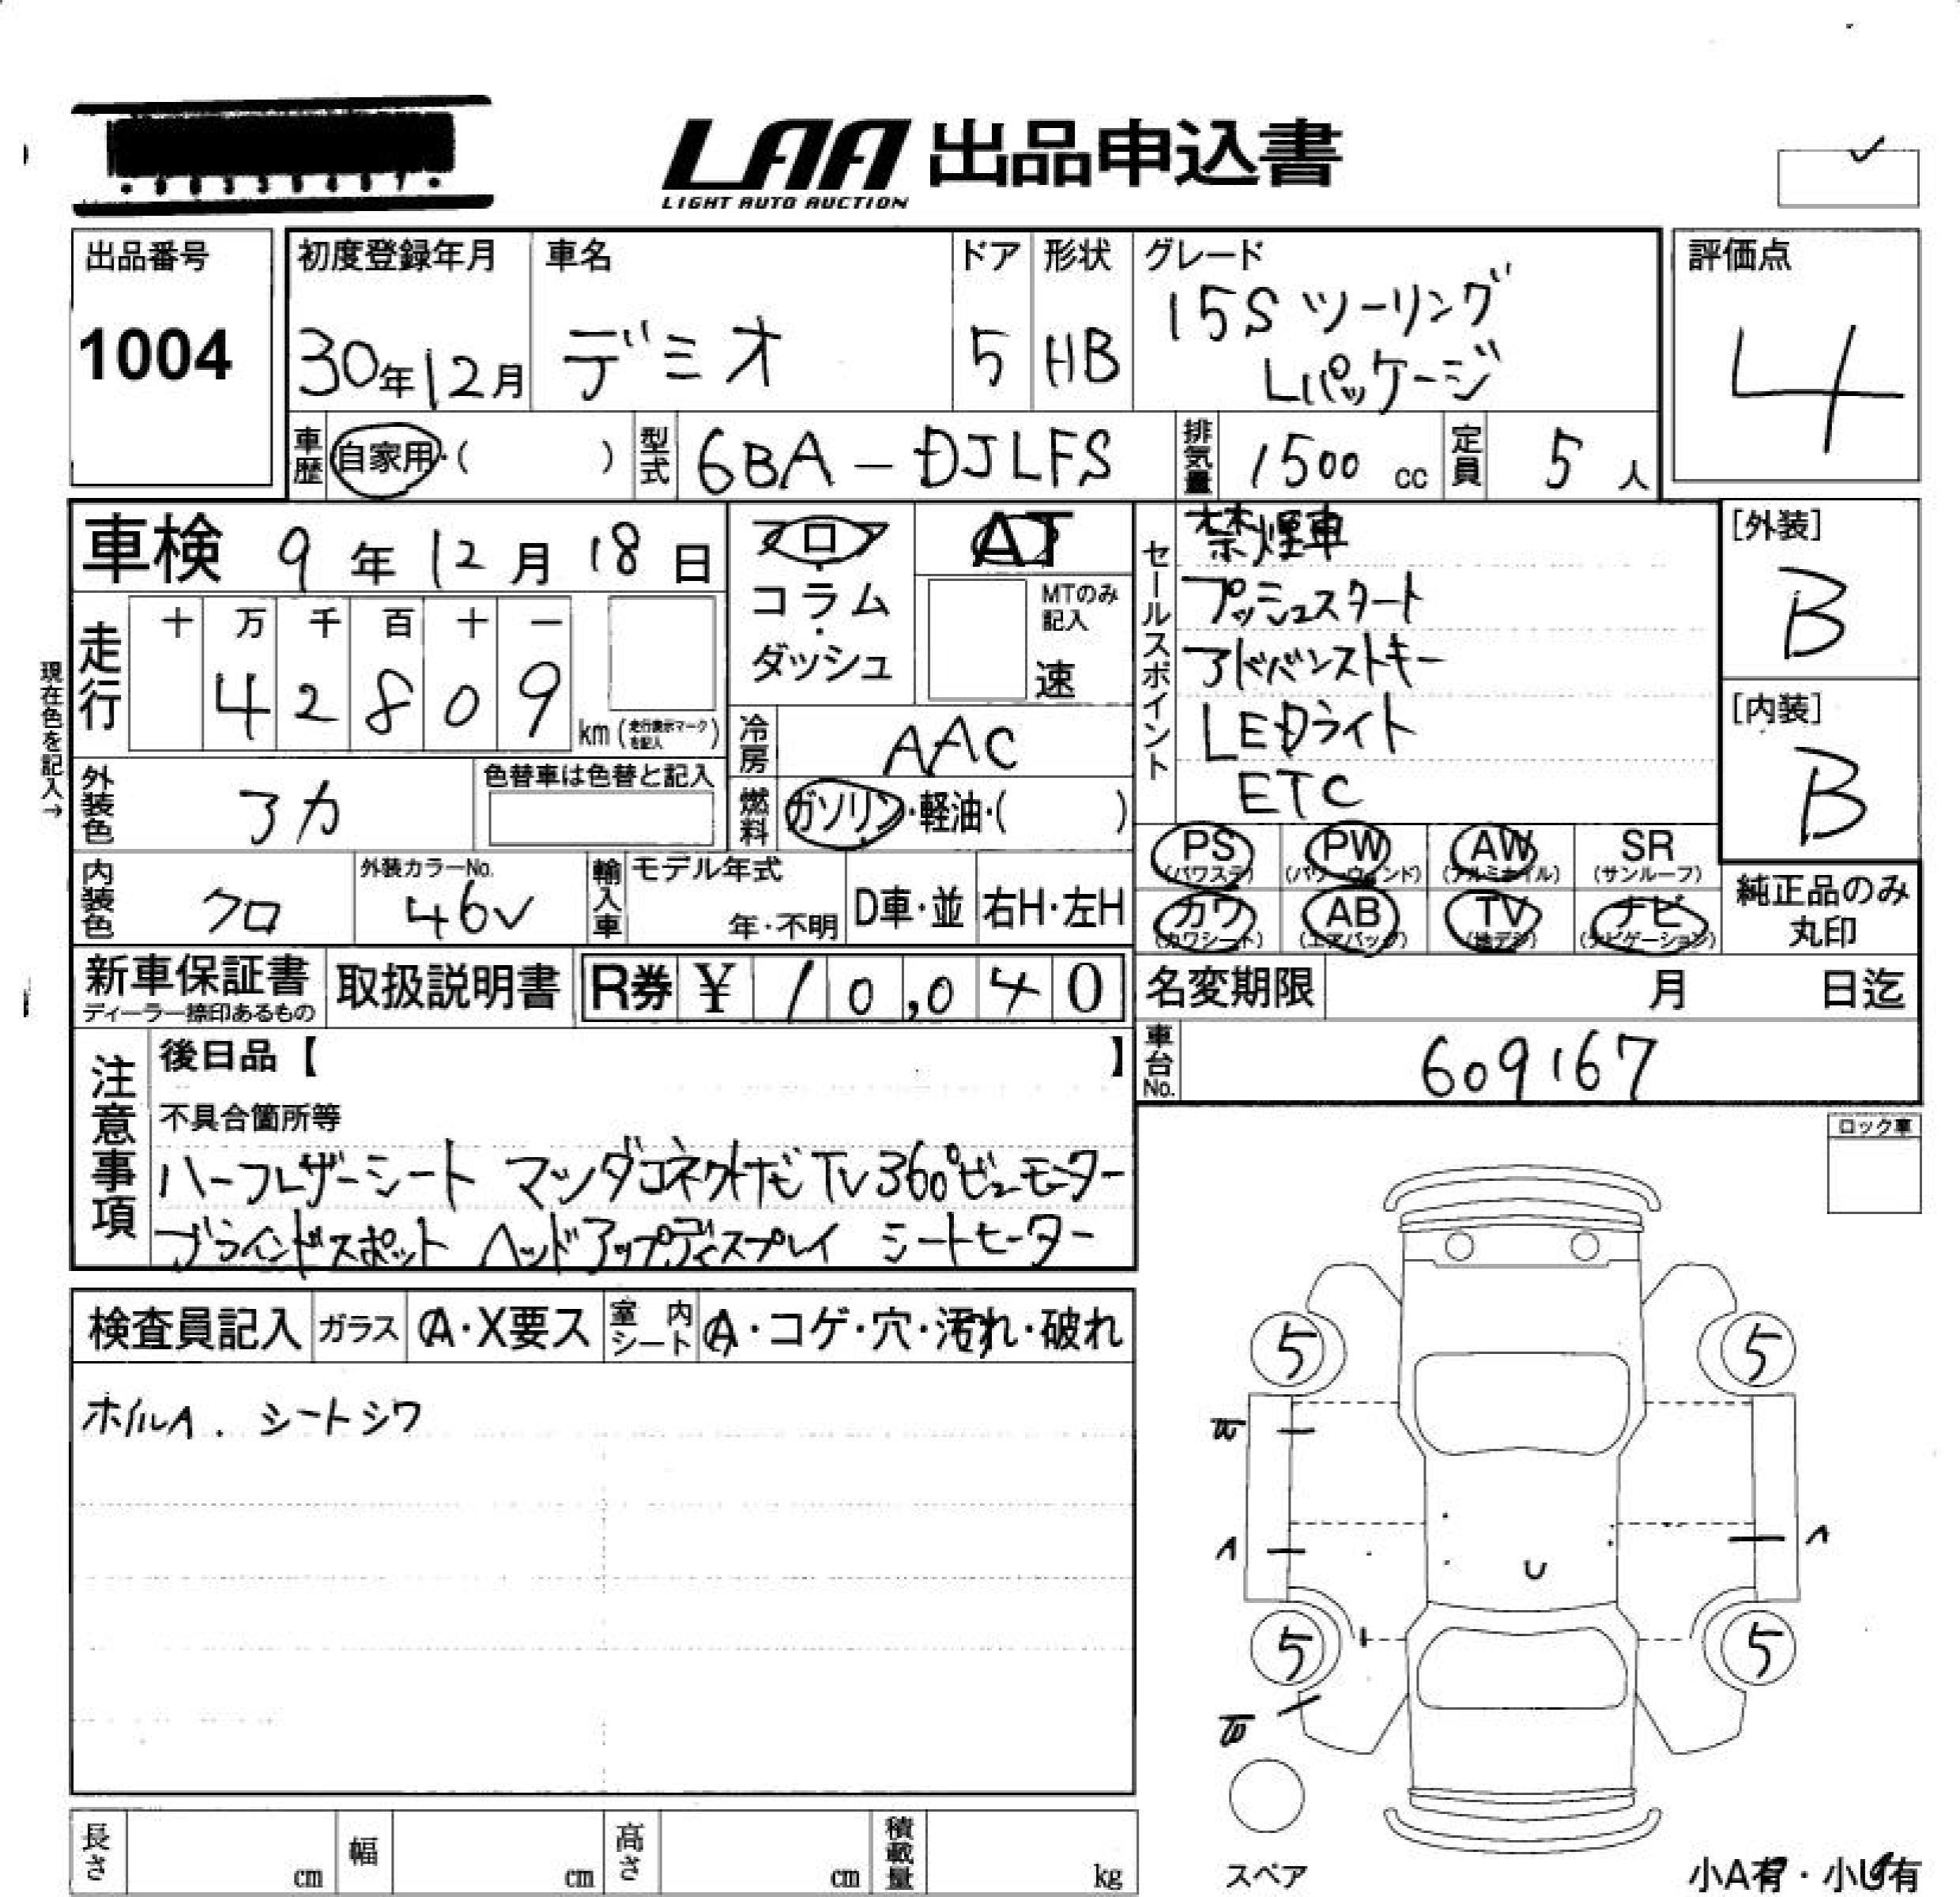 LAA 出品申込書
LIGHT AUTO AUCTION
出品番号
1004
初度登録年月
30年12月
車名
デミオ
ドア
5
形状
HB
グレード
15S ツーリング
Lパッケージ
評価点
4
車歴
自家用・( )
型式
6BA-DJLFS
排気量
1500 cc
定員
5 人
車検 9年12月18日
フロア
・
コラム
・
ダッシュ
AT
MTのみ
記入
速
セールスポイント
禁煙車
プッシュスタート
アドバンストキー
LEDライト
ETC
[外装]
B
[内装]
B
現在色を記入→
走行
十 万 千 百 十 一
4 2 8 0 9
km(走行表示マークを記入)
冷房
AAC
外装色
アカ
色替車は色替と記入
燃料
ガソリン・軽油・( )
PS
(パワステ)
PW
(パワーウィンド)
AW
(アルミホイル)
SR
(サンルーフ)
カワ
(カワシート)
AB
(エアバッグ)
TV
(地デジ)
ナビ
(ナビゲーション)
純正品のみ
丸印
内装色
クロ
外装カラーNo.
46V
輸入車
モデル年式
年・不明
D車・並
右H・左H
新車保証書
ディーラー捺印あるもの
取扱説明書
R券 ¥ 10,040
名変期限 月 日迄
車台No.
609167
注意事項
後日品【 】
不具合箇所等
ハーフレザーシート マツダコネクトナビ TV 360°ビューモーター
ブラインドスポット ヘッドアップディスプレイ シートヒーター
ロック車
検査員記入 ガラス A・X要ス 室内シート A・コゲ・穴・汚れ・破れ
ホイルA. シートシワ
5
5
A
A
U
5
5
スペア
小A有・小U有
長さ cm 幅 cm 高さ cm 積載量 kg